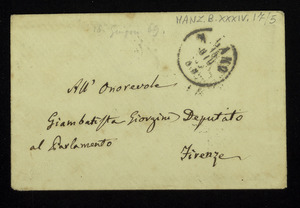 MANZ.B.XXXIV.17/5
All' Onorevole
Giambatista Giorgini Deputato
al Parlamento
Firenze